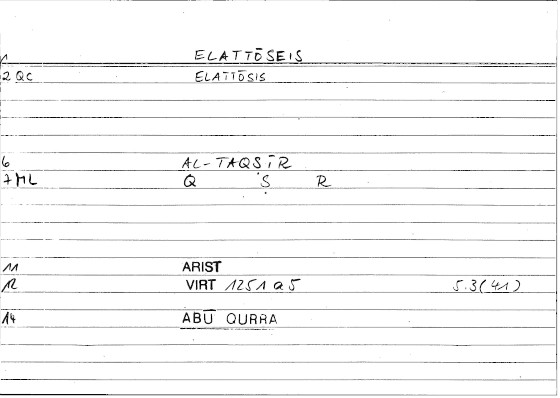 1 ELATTŌSEIS
2 QC ELATTŌSIS
6 AL-TAQṢĪR
7 ML Q Ṣ R
11 ARIST
12 VIRT 1251 a 5 5.3(41)
14 ABŪ QURRA